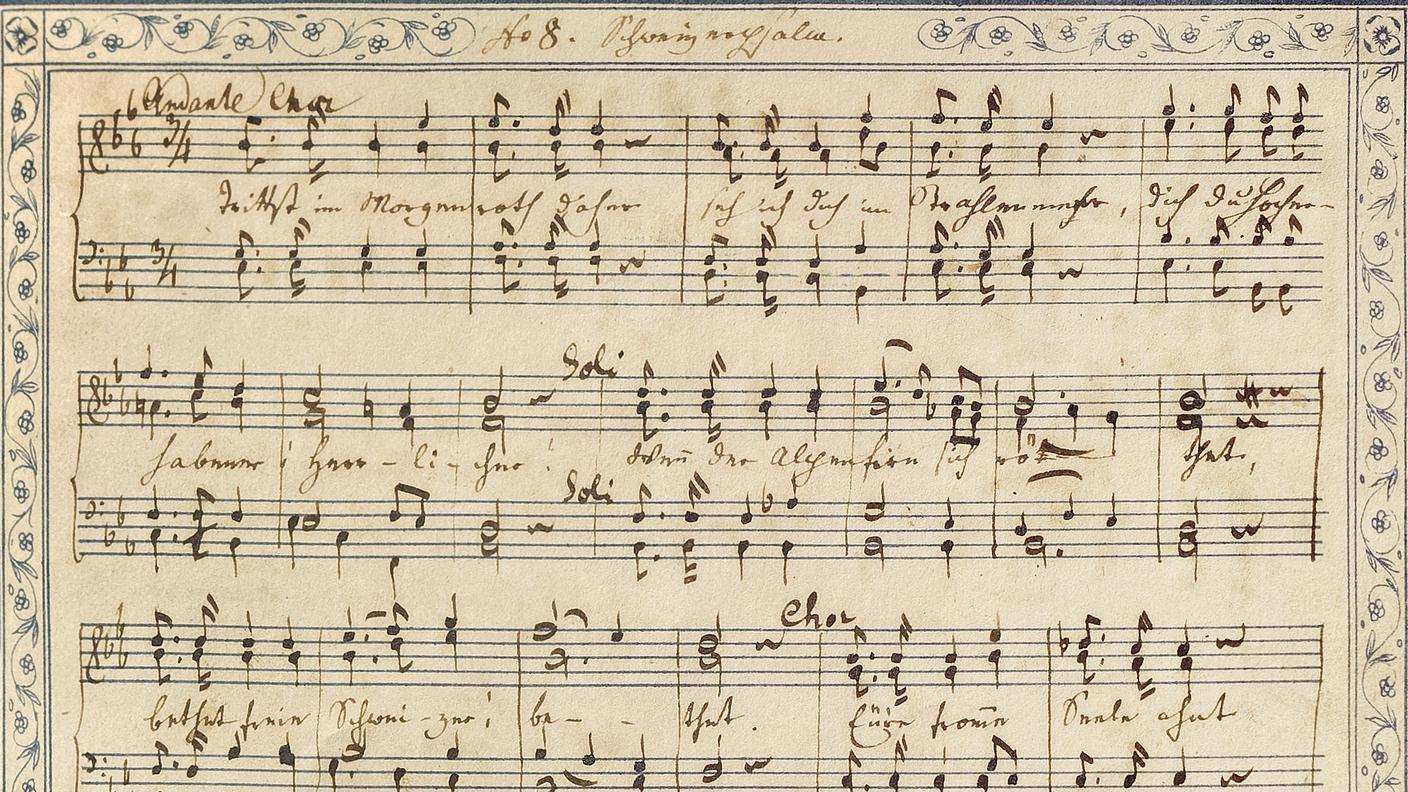 No 8. Schweizerpsalm.
Andante Chor
3/4
Trittst im Morgenroth daher seh' ich dich im Strahlenmeer, dich du Hocher-
3/4
Soli
habener! Herr-li-cher! Wenn der Alpenfirn sich röt thet,
Soli
Chor
bethet freie Schwei-zer! be- - thet. Eure fromme Seele ahnt